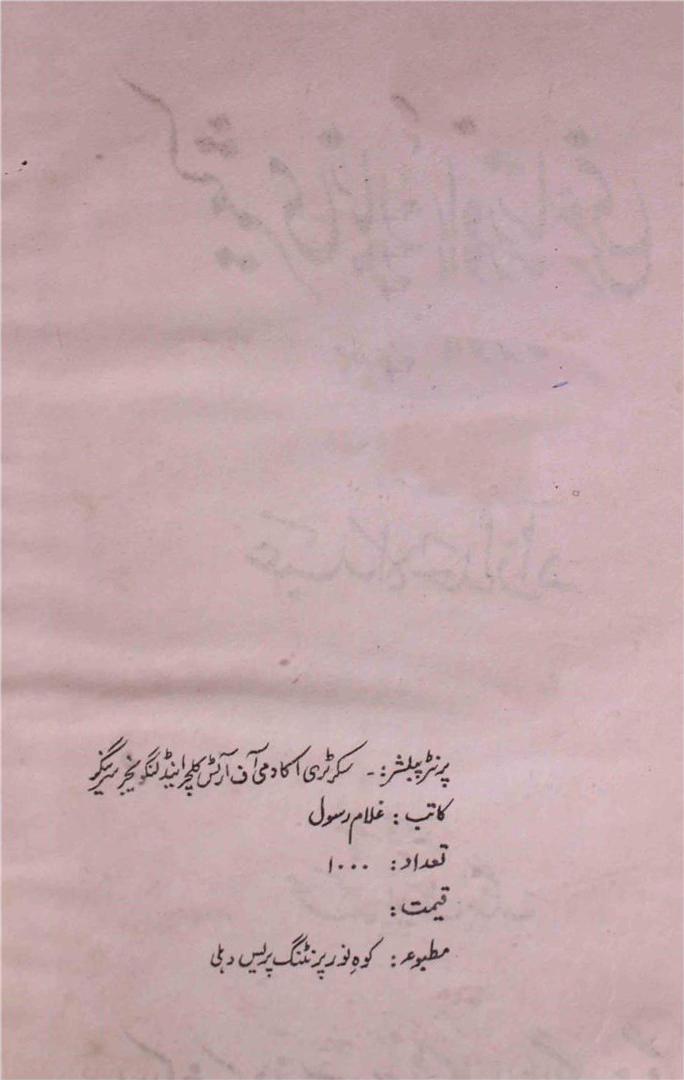 پرنٹر پبلشر:۔ سکرٹری اکادمی آف آرٹس کلچر اینڈ لنگویجز سرینگر
کاتب: غلام رسول
تعداد: ۱۰۰۰
قیمت:
مطبوعہ: کوہِ نور پرنٹنگ پریس دہلی